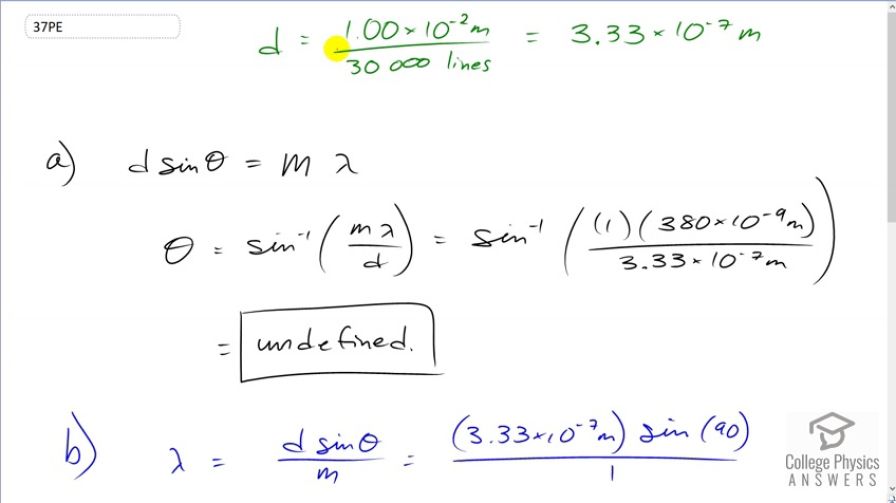 37PE
d = 1.00 × 10⁻² m / 30 000 lines = 3.33 × 10⁻⁷ m
a) d sin θ = m λ
θ = sin⁻¹ (mλ / d) = sin⁻¹ ((1)(380 × 10⁻⁹ m) / 3.33 × 10⁻⁷ m)
= undefined.
b) λ = d sin θ / m = (3.33 × 10⁻⁷ m) sin (90) / 1
College Physics
ANSWERS